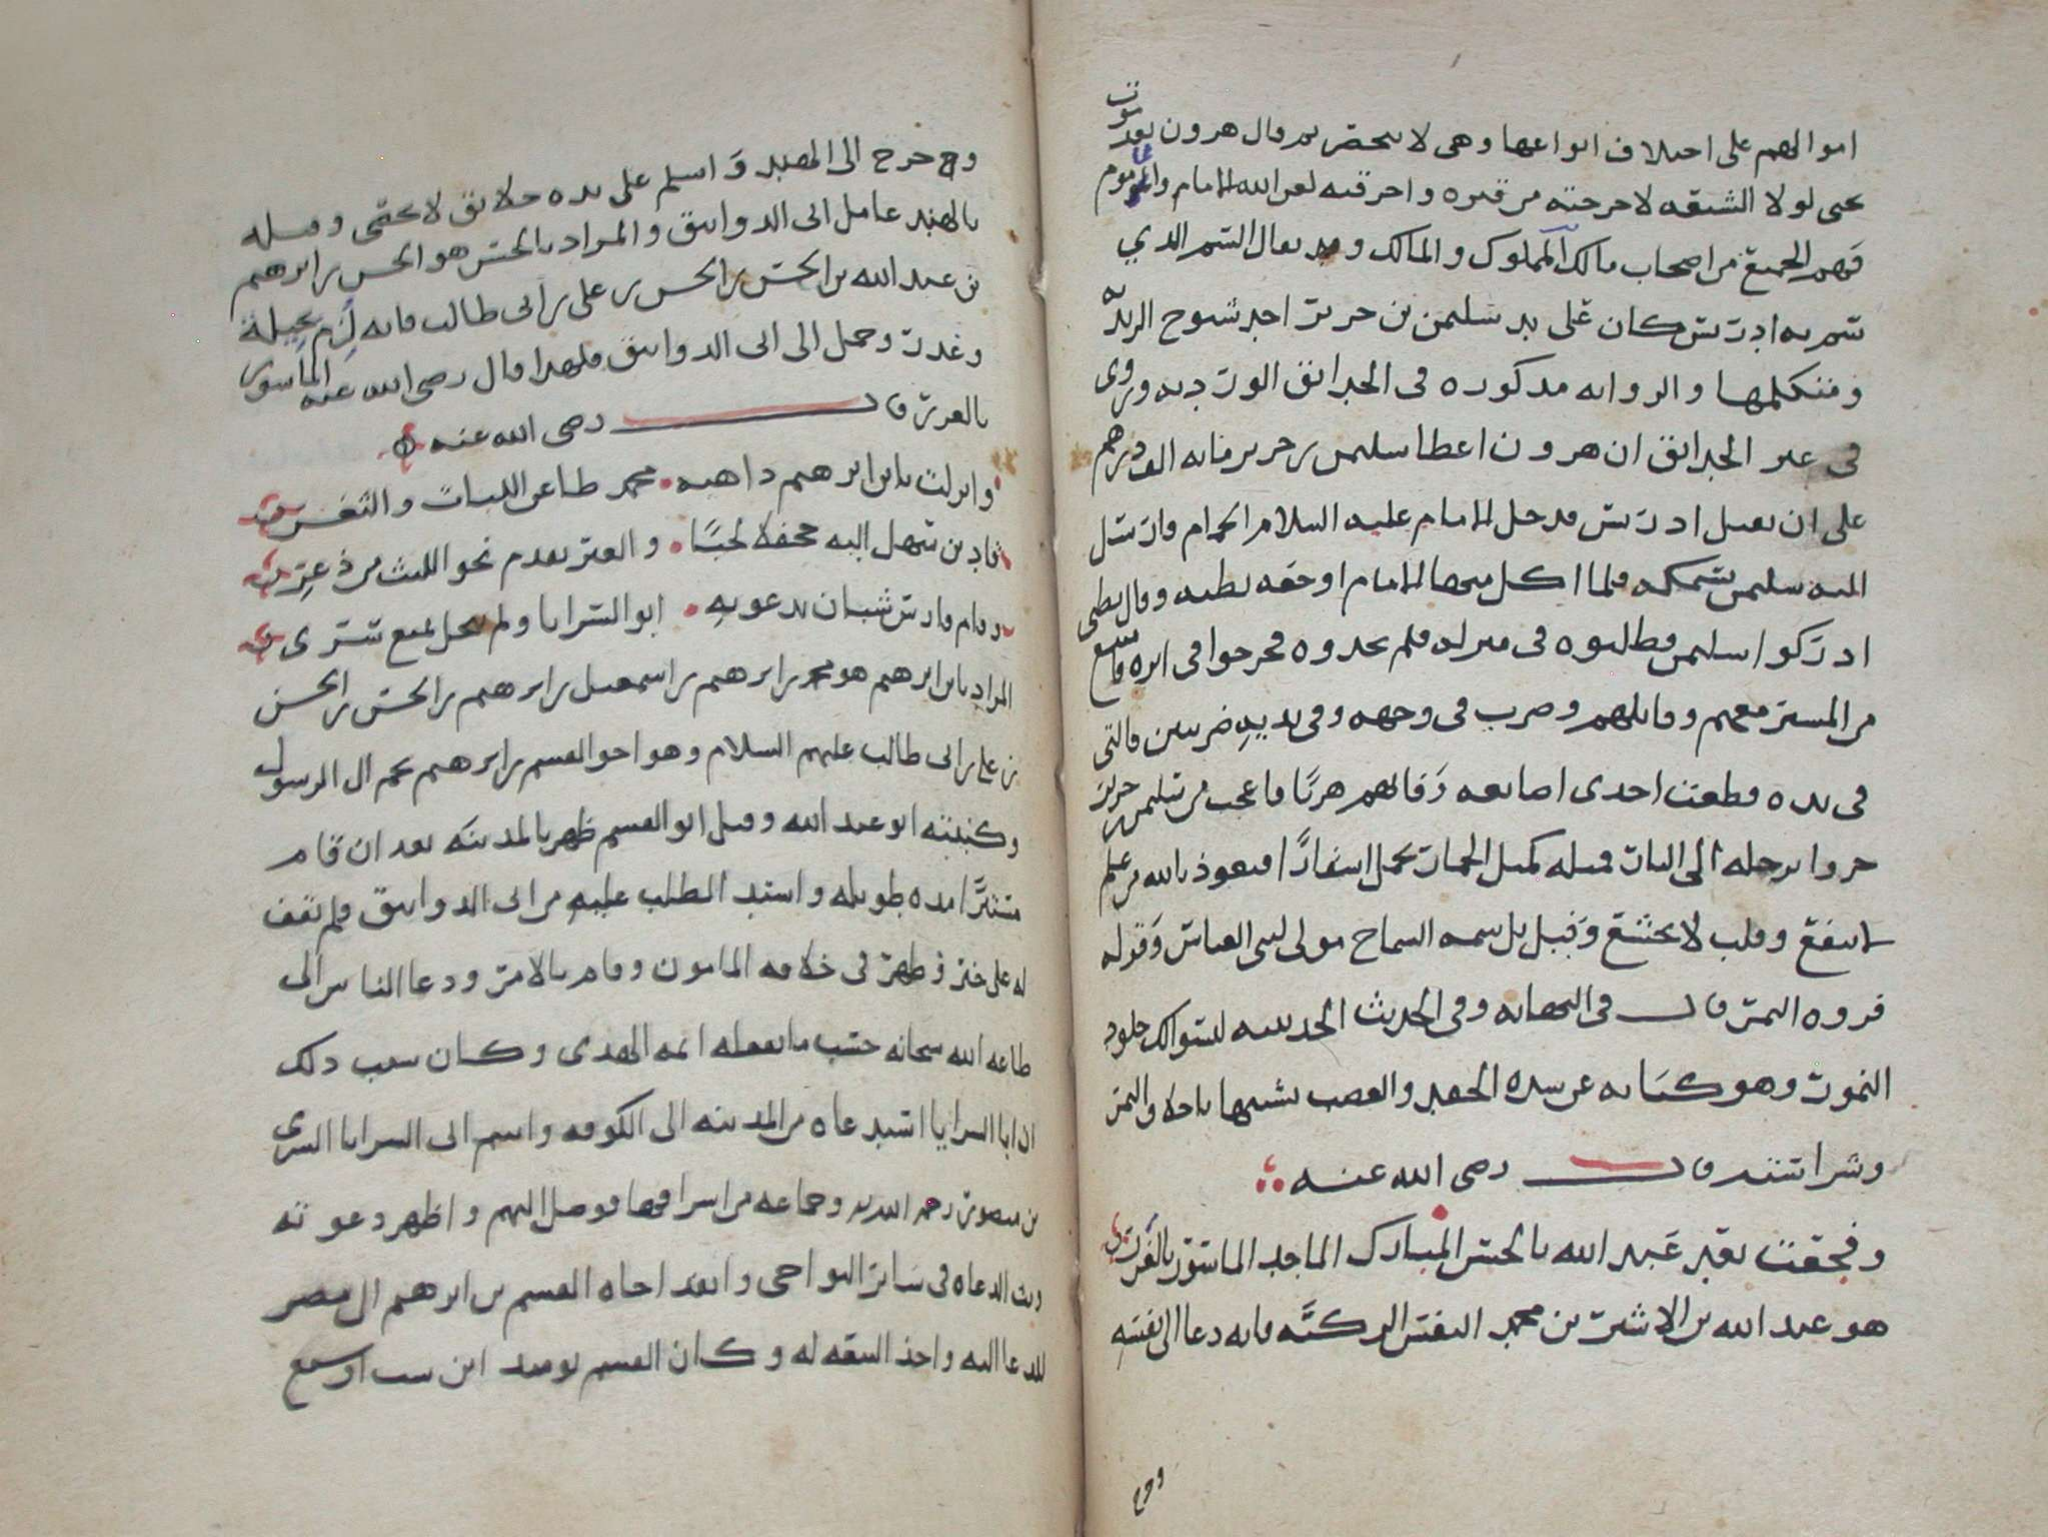 اموالهم على اختلاف انواعها وهى لا تنحصر ثم قال هرون بعد موت
يحيى لولا الشنعه لاخرجته من قبره واحرقته لعن الله الامام والماموم
فهم الجميع من اصحاب مالك المملوك والمالك وقد يقال السم الذي
سم به ادريس كان على يد سليمن بن حرير احد شيوخ الزيديه
ومتكلمها والروايه مذكوره فى الحدائق الورديه وروى
فى غير الحدائق ان هرون اعطا سليمن بن حرير مايه الف درهم
على ان يقتل ادريس فدخل الامام عليه السلام الحمام فارسل
اليه سليمن بسمكه فلما اكل منها الامام اوجعه بطنه وقال بطنى
ادركوا سليمن فطلبوه فى منزله فلم يجدوه فخرجوا فى اثره
من المسير معهم وقاتلهم وضرب فى وجهه وفى يديه ضربتين فالتى
فى يده قطعت احدى اصابعه وفاتهم هربًا فاعجب من سليمن بن حرير
جروا برجله الى النار فمثله كمثل الحمار يحمل اسفارًا فنعوذ بالله من علم
لا ينفع وقلب لا يخشع وقيل بل سمه السماح مولى لبنى العباس وقوله
فروه النمر قال فى النهايه وفى الحديث الحديبيه لبسوا لك جلود
النمور وهو كنايه عن شده الحقد والغضب تشبيها باخلاق النمر
وشراسته قال رضى الله عنه
وفجعت بعبد عبد الله بالحسن المبارك الماجد الماسور بالغرر
هو عبد الله بن الاشتر بن محمد النفس الزكيه فانه دعا الى نفسه
وخرج
وخرج الى الهند واسلم على يده خلائق لا تحصى وقتله
بالهند عامل ابى الدوانيق والمراد بالحسن هو الحسن بن ابرهيم
بن عبد الله بن الحسن بن الحسن بن على بن ابى طالب فانه لزم بحيلة
وغدر وحمل الى ابى الدوانيق فلهذا قال رضى الله عنه الماسور
بالغرر قال رضى الله عنه
وانزلت بابن ابرهيم داهيه محمد طاعن اللبات والثغر
قاد بن سهل اليه جحفلا لجبًا والعير يقدم نحو الليث من ذعر
وقام فارس شيبان بدعوته ابو السرايا ولم يحل لمنع سرى
المراد بابن ابرهيم هو محمد بن ابرهيم بن اسمعيل بن ابرهيم بن الحسن بن الحسن
بن على بن ابى طالب عليهم السلام وهو اخو القسم بن ابرهيم نجم ال الرسول
وكنيته ابو عبد الله وقيل ابو القسم ظهر بالمدينه بعد ان قام
مستترًا مده طويله واشتد الطلب عليه من ابى الدوانيق ولم يقف
له على خبر فظهر فى خلافه المامون وقام بالامر ودعا الناس الى
طاعه الله سبحانه حسب ما يفعله ائمه الهدى وكان سبب ذلك
ان ابا السرايا استدعاه من المدينه الى الكوفه واسم ابى السرايا السرى
بن منصور رحمه الله وجماعه من اشرافها فوصل اليهم واظهر دعوته
وبث الدعاه فى سائر النواحى وانفذ اخاه القسم بن ابرهيم الى مصر
للدعا اليه واخذ البيعه له وكان القسم يومئذ ابن ست او سبع